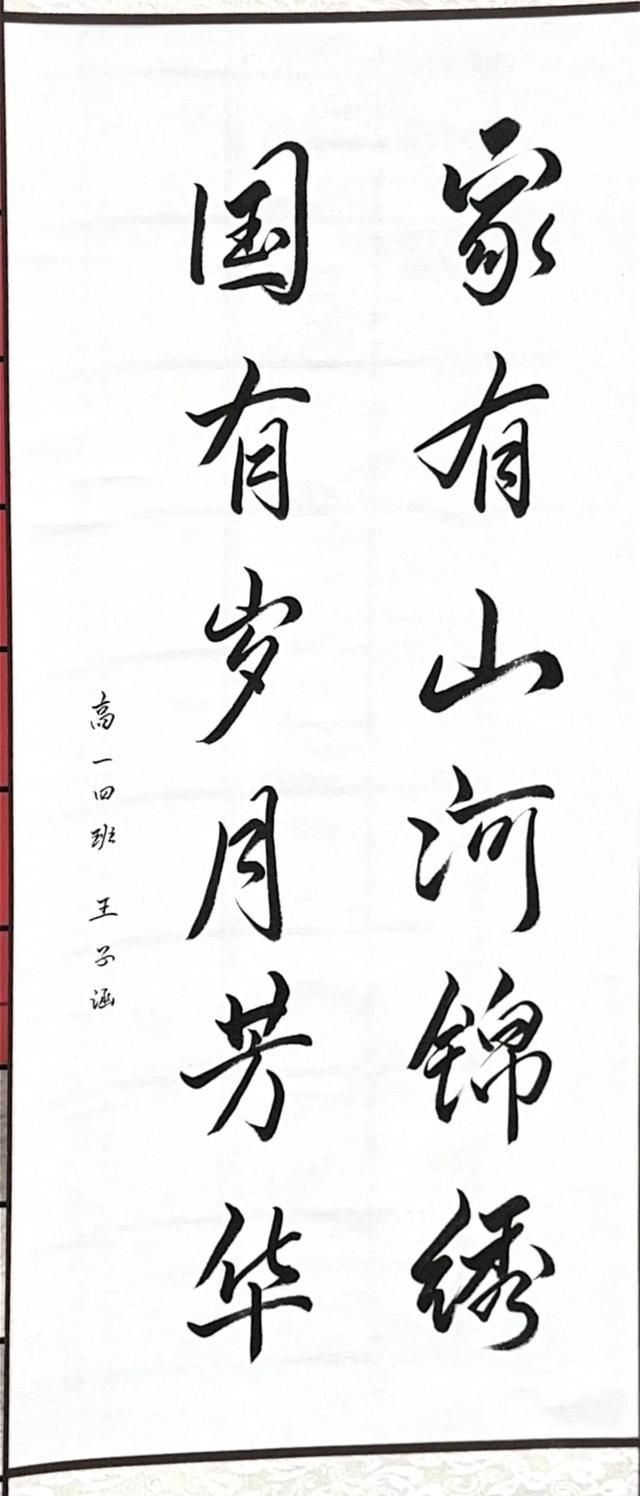 家有山河锦绣
国有岁月芳华
高一四班 王子涵